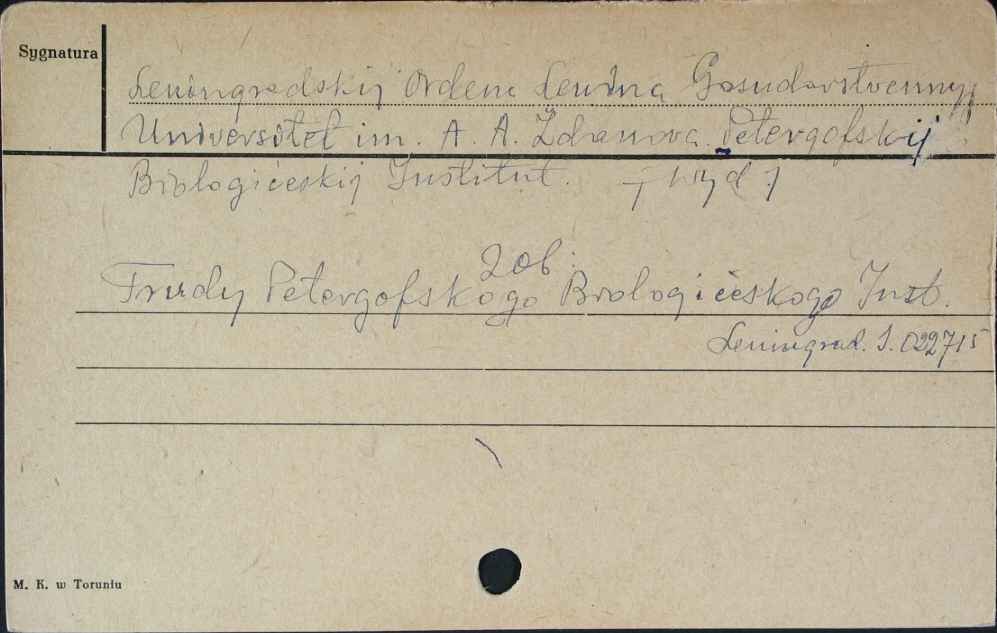 Sygnatura
Leningradskij Ordena Lenina Gosudarstvennyj
Universitet im. A. A. Ždanova. Petergofskij
Biologičeskij Institut. [wyd.]
zob:
Trudy Petergofskogo Biologičeskogo Inst.
Leningrad. S. 022715
M. K. w Toruniu